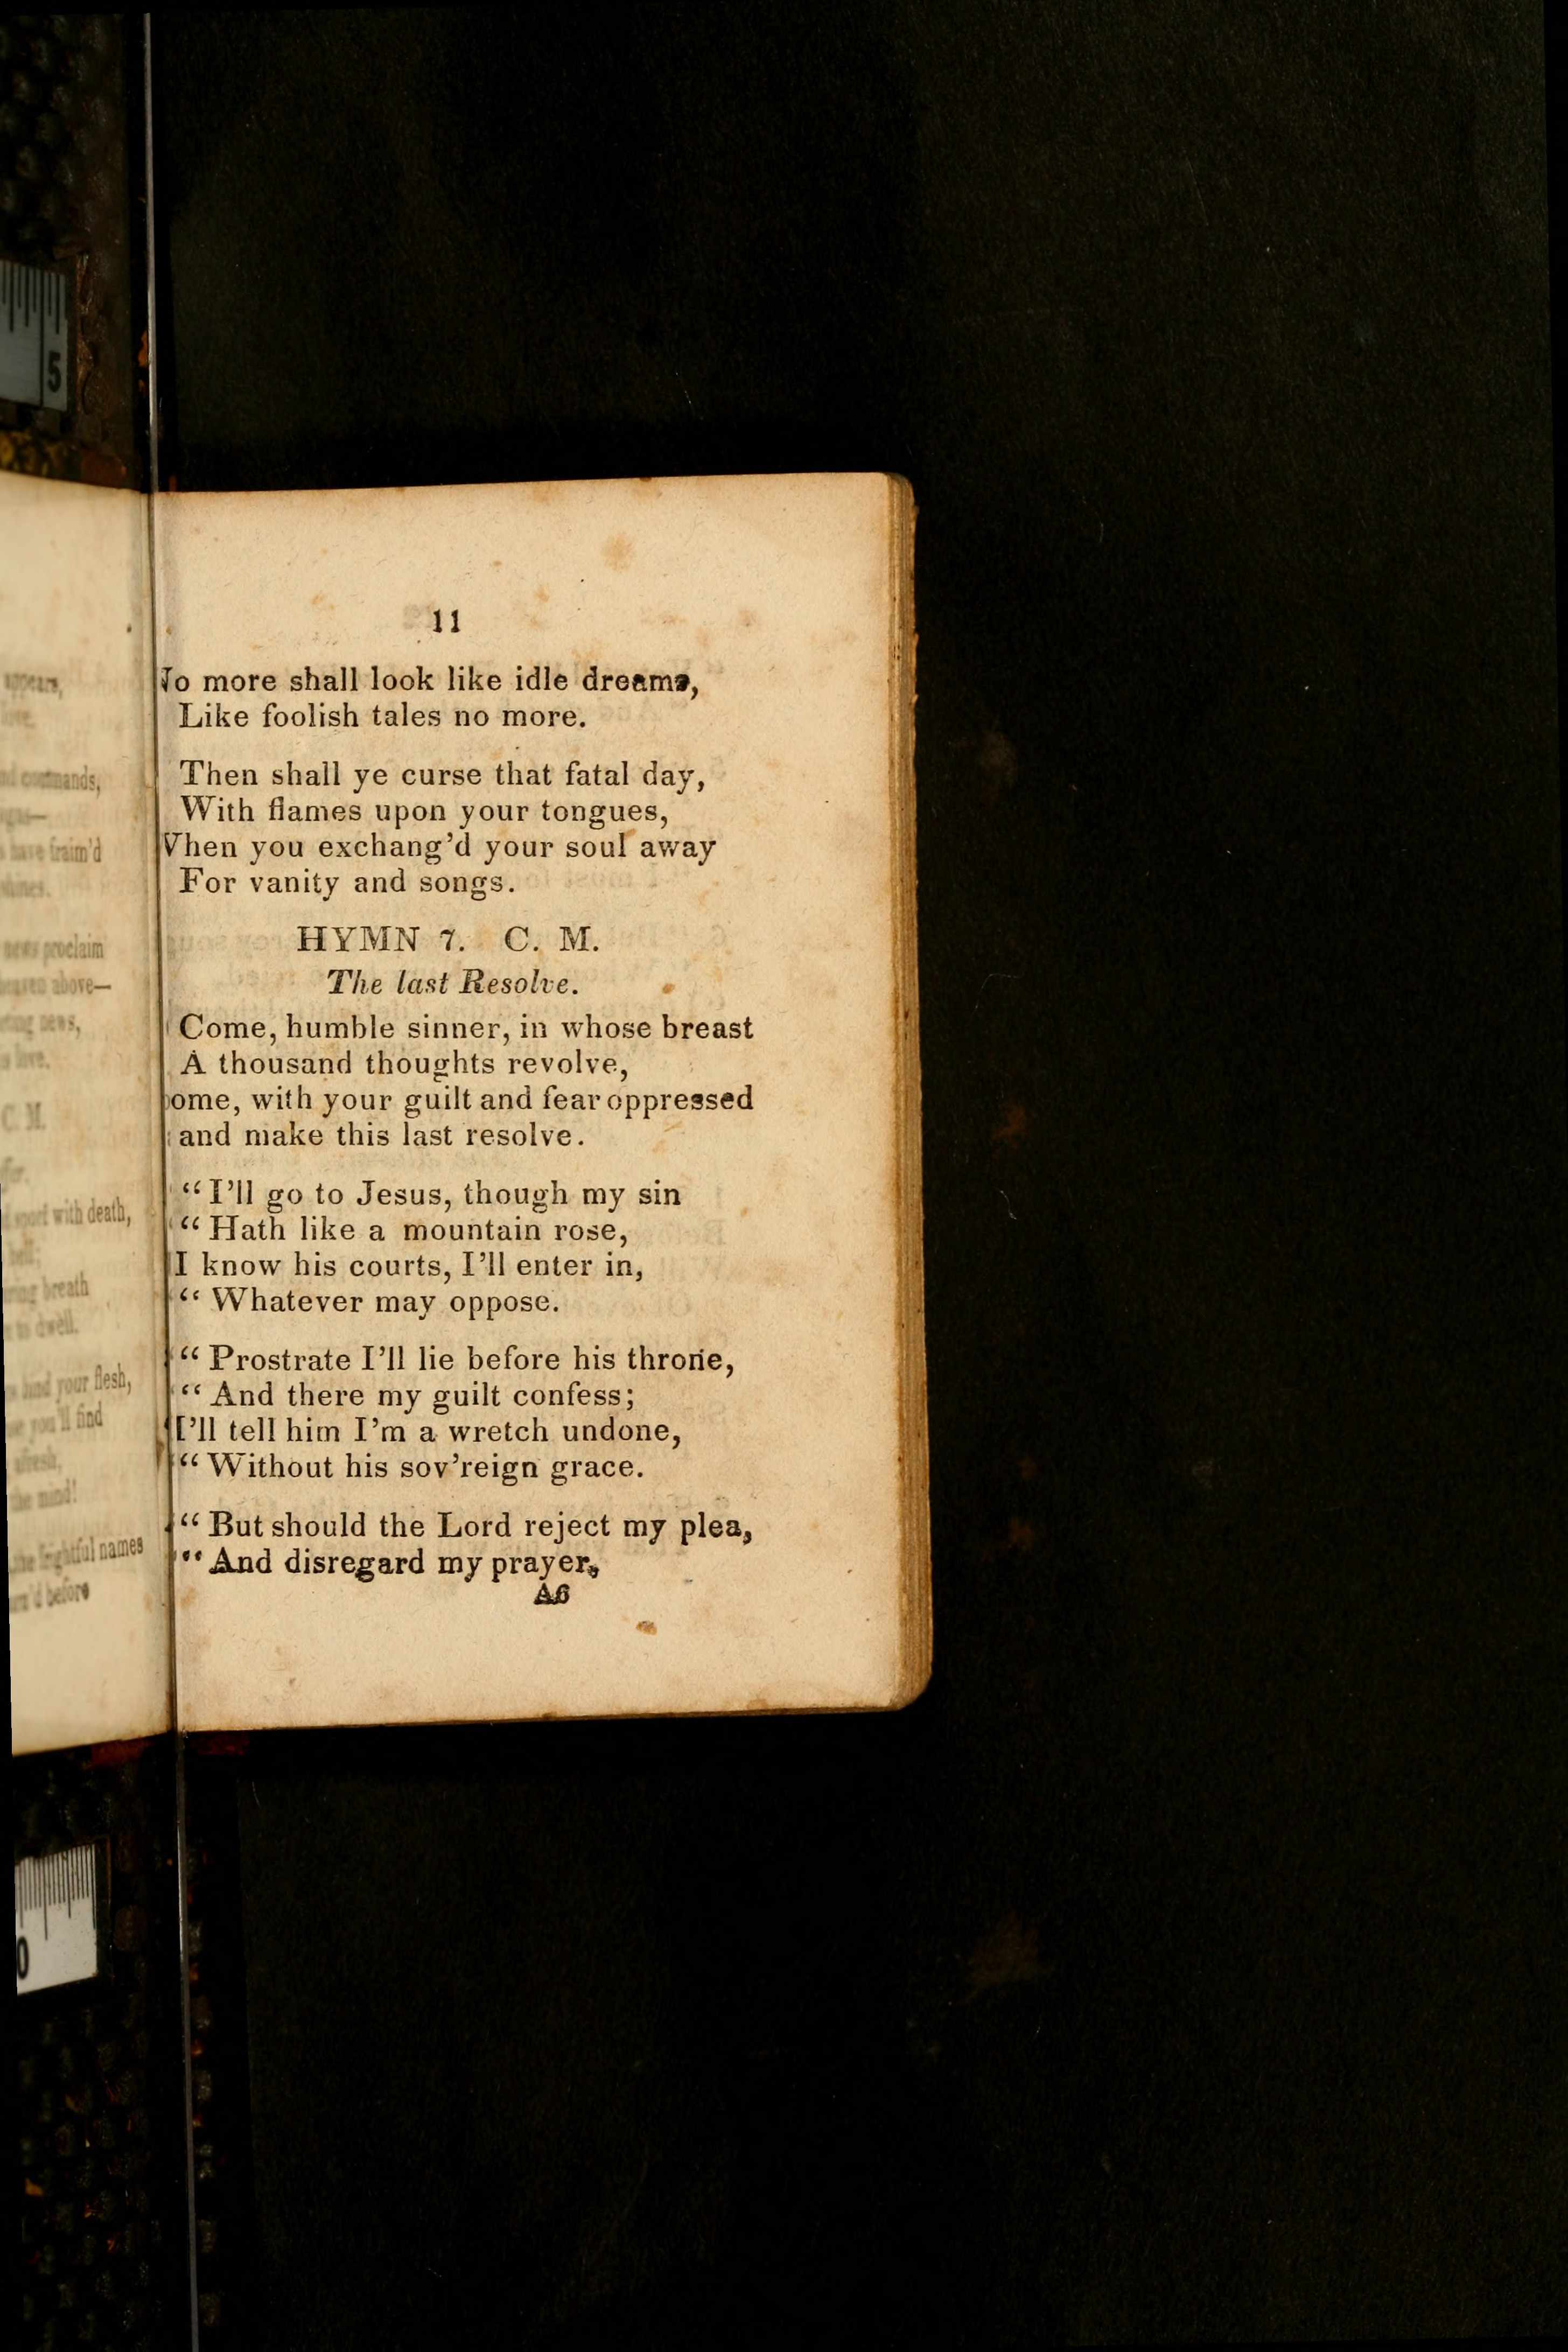 11
No more shall look like idle dreams,
Like foolish tales no more.
Then shall ye curse that fatal day,
With flames upon your tongues,
When you exchang'd your soul away
For vanity and songs.
HYMN 7. C. M.
The last Resolve.
Come, humble sinner, in whose breast
A thousand thoughts revolve,
ome, with your guilt and fear oppressed
and make this last resolve.
"I'll go to Jesus, though my sin
"Hath like a mountain rose,
I know his courts, I'll enter in,
"Whatever may oppose.
"Prostrate I'll lie before his throne,
"And there my guilt confess;
I'll tell him I'm a wretch undone,
"Without his sov'reign grace.
"But should the Lord reject my plea,
"And disregard my prayer,
A6
commands,
fraim'd
proclaim
above—
news,
love.
C. M.
with death,
breath
dwell.
and your flesh,
you'll find
afresh.
mind!
names
before
5
0